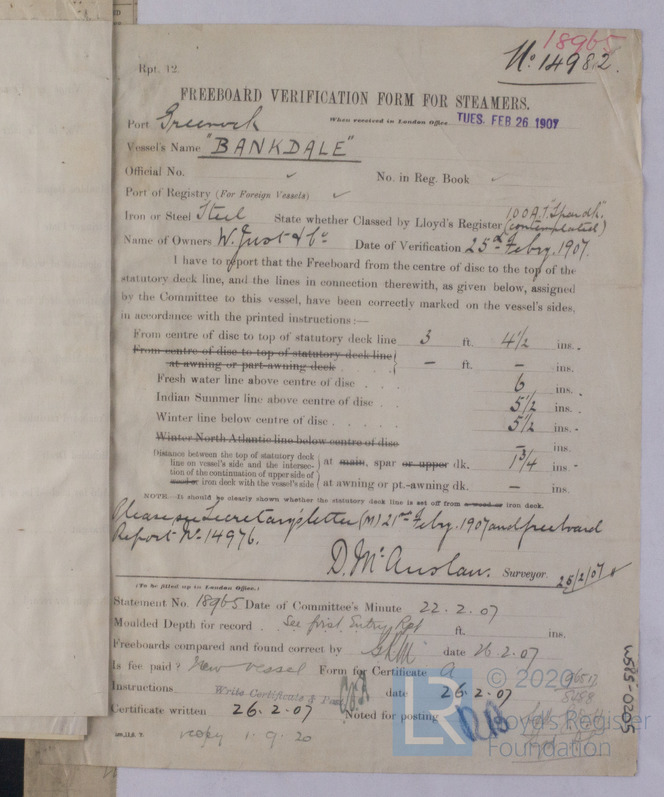 18965
No. 14982.
Rpt. 12.
FREEBOARD VERIFICATION FORM FOR STEAMERS.
Port Greenock When received in London Office TUES. FEB 26 1907
Vessel's Name "BANKDALE"
Official No. No. in Reg. Book
Port of Registry (For Foreign Vessels)
Iron or Steel Steel State whether Classed by Lloyd's Register 100A1 "Spar dk." (contemplated)
Name of Owners W. Just & Co Date of Verification 25th Febry. 1907.
I have to report that the Freeboard from the centre of disc to the top of the
statutory deck line, and the lines in connection therewith, as given below, assigned
by the Committee to this vessel, have been correctly marked on the vessel's sides,
in accordance with the printed instructions:—
From centre of disc to top of statutory deck line 3 ft. 4 1/2 ins.
From centre of disc to top of statutory deck line
at awning or part-awning deck – ft. – ins.
Fresh water line above centre of disc 6 ins.
Indian Summer line above centre of disc 5 1/2 ins.
Winter line below centre of disc 5 1/2 ins.
Winter North Atlantic line below centre of disc – ins.
Distance between the top of statutory deck
line on vessel's side and the intersec-
tion of the continuation of upper side of
wood or iron deck with the vessel's side
at main, spar or upper dk. 1 3/4 ins.
at awning or pt.-awning dk. – ins.
NOTE. It should be clearly shown whether the statutory deck line is set off from a wood or iron deck.
Please see Secretary's letter (M) 21st Febry. 1907 and freeboard
Report No. 14976.
D. McAuslan. Surveyor. 25/2/07
(To be filled up in London Office.)
Statement No. 18965 Date of Committee's Minute 22.2.07
Moulded Depth for record See first Entry Rpt ft. ins.
Freeboards compared and found correct by date 26.2.07
Is fee paid? New vessel Form for Certificate A
Instructions Write Certificate & date 26.2.07
Certificate written 26.2.07 Noted for posting
copy 1.9.20
W515-0205
LR
© 2020
Lloyd's Register
Foundation